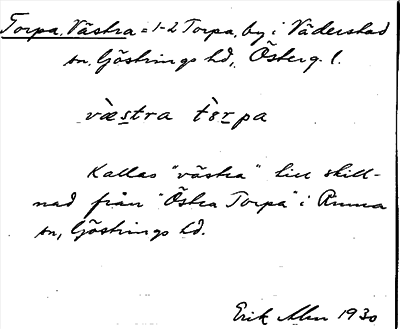 Torpa, Västra = 1-2 Torpa, by i Väderstad
sn, Göstrings hd, Österg. l.
và̤stra tɔ̀rpa
Kallas "västra" till skill-
nad från "Östra Torpa" i Rinna
sn, Göstrings hd.
Erik 1930